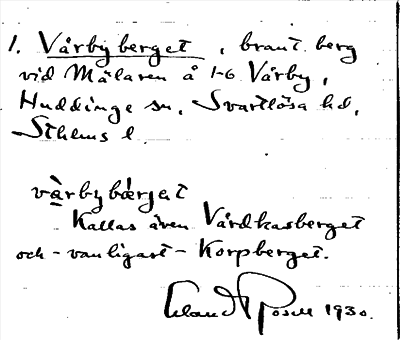 1. Vårbyberget, brant berg
vid Mälaren å 1-6 Vårby,
Huddinge sn, Svartlösa hd,
Sthlms l.
vàrbybæ̀rjat
Kallas även Vårdkasberget
och - vanligast - Korpberget.
Erland Rosell 1930.